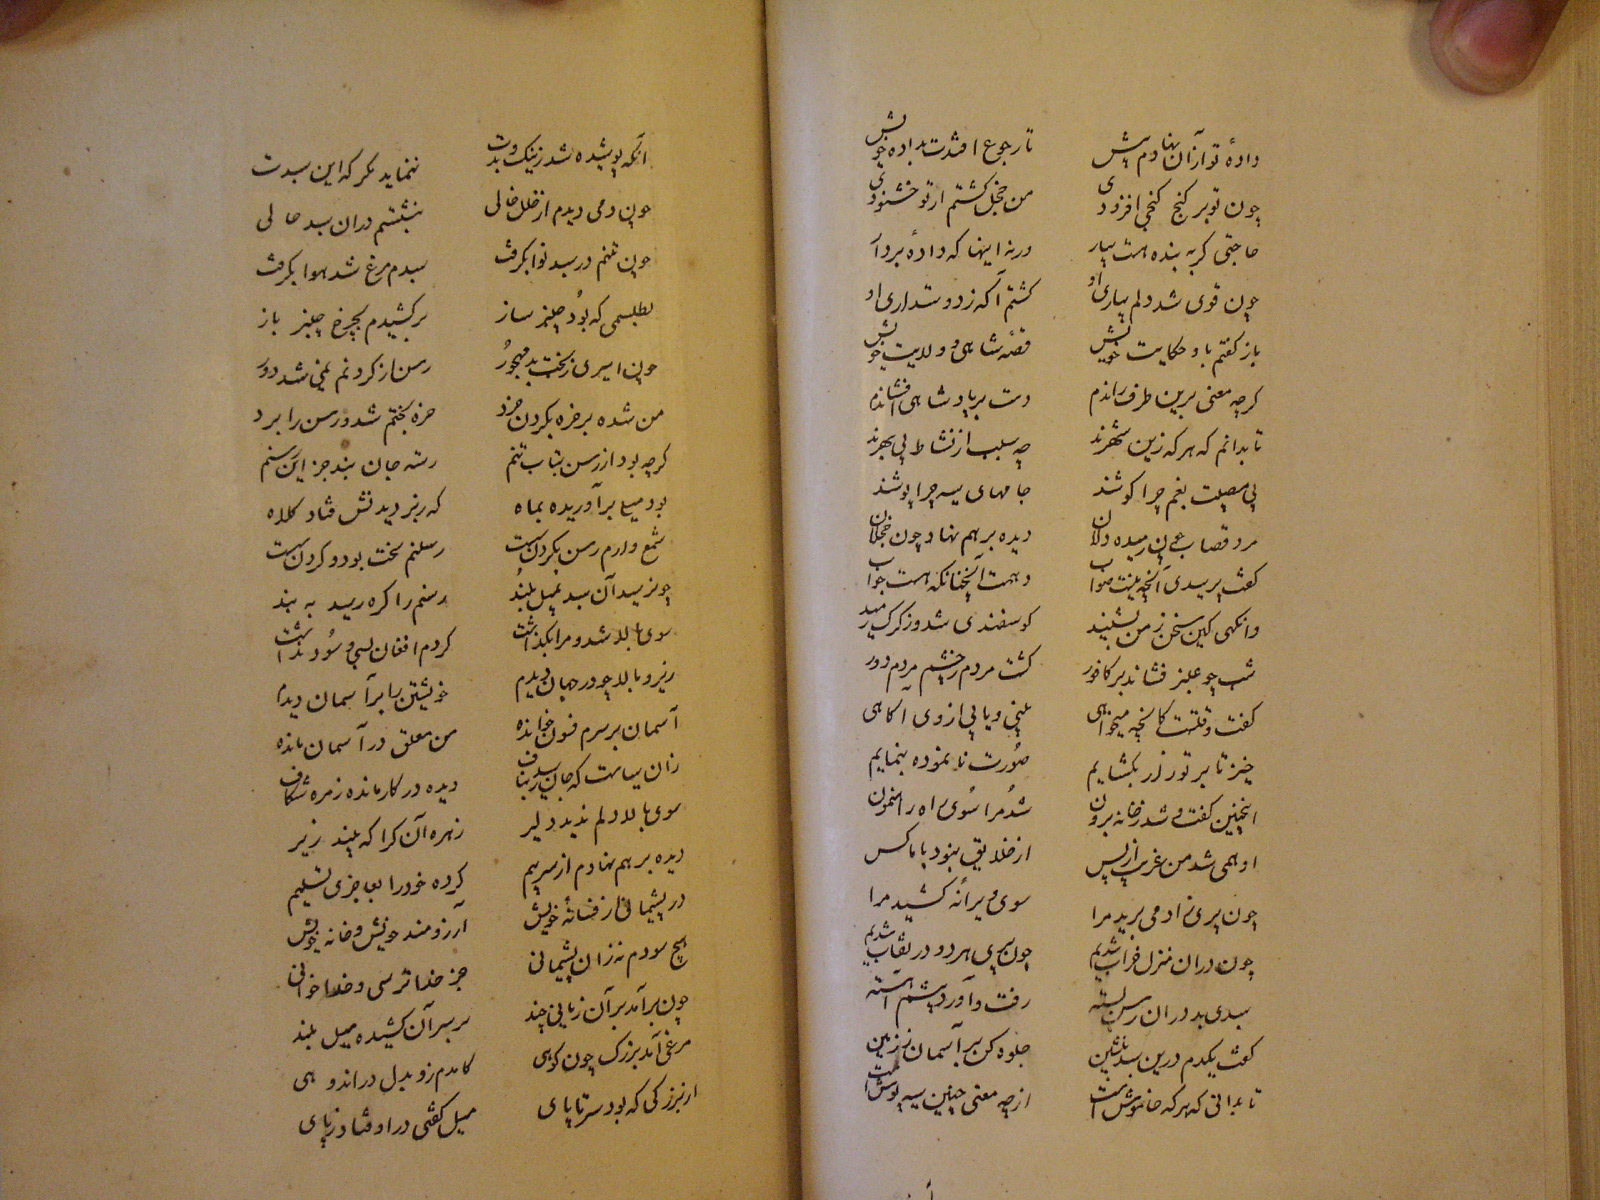 دادهٔ تو از آن نهادم پیش تا رجوع افتدت بدادهٔ خویش
چون تو بر گنج گنجی افزودی من خجل گشتم ار تو خشنودی
حاجتی گر به بنده هست بیار ورنه اینها که دادهٔ بردار
چون قوی شد دلم بیاری او گشتم آگه ز دوستداری او
باز گفتم باو حکایت خویش قصهٔ شاهی و ولایت خویش
گرچه معنی برین طرف راندم دست بر پادشاهی افشاندم
تا بدانم که هر که زین شهرند چه سبب از نشاط بی بهرند
بی مصیبت بغم چرا کوشند جامهای سیه چرا پوشند
مرد قصاب رمیده دلان دیده بر هم نهاد چون خجلان
گفت پرسیدی آنچه نیست صواب دهمت آنچنانکه هست جواب
وانگهی کین سخن ز من بشنید گوسفندی شد و ز گرگ رمید
شب چو عنبر فشاند بر کافور گشت مردم ز چشم مردم دور
گفت وقتست کانچه میخواهی بینی و یابی از وی آگاهی
خیز تا بر تو راز بکشایم صورت نانموده بنمایم
اینچنین گفت و شد ز خانه برون شد مرا سوی راه راهنمون
او همی شد من غریب از پس از خلایق نبود با ما کس
چون پری ز آدمی برید مرا سوی ویرانه کشید مرا
چون دران منزل خراب شدیم چون پری هر دو در نقاب شدیم
سبدی بد دران رسن بسته رفت و آورد پیشم آهسته
گفت یکدم درین سبد بنشین جلوه کن بر آسمان و زمین
تا بدانی که هر که خاموشست از چه معنی چنین سیه پوشست
آنکه پوشیده شد ز نیک و بدت ننماید مگر که این سبدت
چون دمی دیدم از خلل خالی بنشستم دران سبد حالی
چون تنم در سبد نوا بگرفت سبدم مرغ شد هوا بگرفت
بطلسمی که بود چنبر ساز برکشیدم بچرخ چنبر باز
چون اسیری ز بخت بد مهجور رسن از گردنم نمی شد دور
من شده بر خره بگردن خرد خره بختم شد و رسن را برد
گرچه بود از رسن بتاب تنم رشته جان نبد جز این رسنم
بود میلی برآوریده بماه که ز بر دیدنش فتاد کلاه
شمع وارم رسن بگردن بست رسنم سخت بود و گردن بست
چون رسید آن سبد بمیل بلند رسنم را گره رسید به بند
سوی بالا شد و مرا بگذاشت کردم افغان بسی و سود نداشت
زیر و بالا چو در جهان دیدم خویشتن را بر آسمان دیدم
آسمان بر سرم فسون خوانده من معلق در آسمان مانده
زان سیاست که جان رسید بناف دیده در کار مانده زهره شکاف
سوی بالا دلم ندید دلیر زهره آن کرا که بیند زیر
دیده بر هم نهادم از سر بیم کرده خود را بعاجزی تسلیم
در پشیمانی از فسانهٔ خویش آرزومند خویش و خانه خویش
هیچ سودم نه زان پشیمانی جز خدا ترسی و خدا خوانی
چون برآمد بر آن زمانی چند بر سر آن کشیده میل بلند
مرغی آمد بزرگ چون کوهی کامدم زو بدل در اندوهی
از بزرگی که بود سر تا پای میل گفتی در اوفتاد ز پای